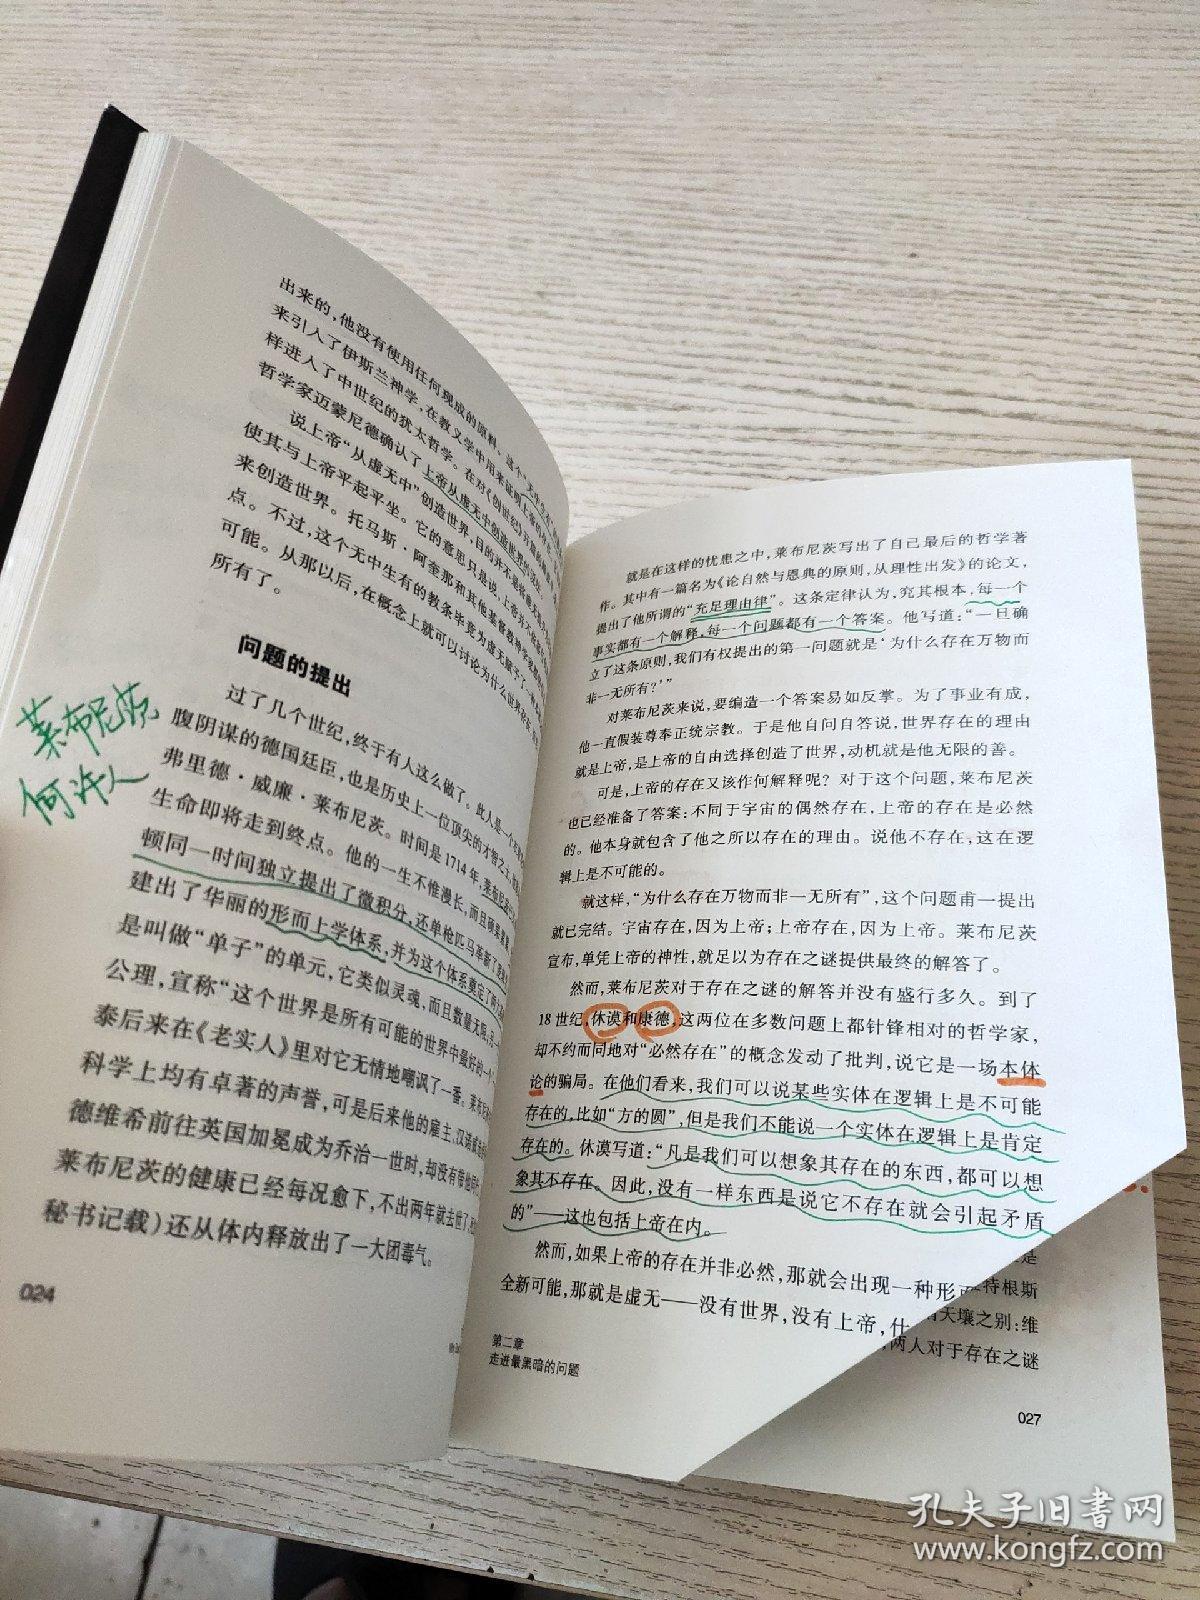 出来的，他没有使用任何现成的原料。这个“无中生有”
来引入了伊斯兰神学，在教义学中用来证明上帝的存在
样进入了中世纪的犹太哲学。在对《创世纪》
哲学家迈蒙尼德确认了上帝从虚无中创造世界
说上帝“从虚无中”创造世界，目的并不是将虚无
使其与上帝平起平坐。它的意思只是说，上帝
来创造世界。托马斯·阿奎那和其他基督教神学家
点。不过，这个无中生有的教条毕竟为虚无赋予了一种
可能。从那以后，在概念上就可以讨论为什么世界存在
所有了。
问题的提出
莱布尼茨
何许人
过了几个世纪，终于有人这么做了。此人是一个
腹阴谋的德国廷臣，也是历史上一位顶尖的才智之士
弗里德·威廉·莱布尼茨。时间是1714年，莱布尼茨
生命即将走到终点。他的一生不惟漫长，而且硕果
顿同一时间独立提出了微积分，还单枪匹马革新了
建出了华丽的形而上学体系，并为这个体系奠定了
是叫做“单子”的单元，它类似灵魂，而且数量无限；另一
公理，宣称“这个世界是所有可能的世界中最好的一个”
泰后来在《老实人》里对它无情地嘲讽了一番。莱布尼茨
科学上均有卓著的声誉，可是后来他的雇主、汉诺威
德维希前往英国加冕成为乔治一世时，却没有带他同行
莱布尼茨的健康已经每况愈下，不出两年就去世了
秘书记载）还从体内释放出了一大团毒气。
024
就是在这样的忧患之中，莱布尼茨写出了自己最后的哲学著
作。其中有一篇名为《论自然与恩典的原则，从理性出发》的论文，
提出了他所谓的“充足理由律”。这条定律认为，究其根本，每一个
事实都有一个解释，每一个问题都有一个答案。他写道：“一旦确
立了这条原则，我们有权提出的第一问题就是‘为什么存在万物而
非一无所有？’”
对莱布尼茨来说，要编造一个答案易如反掌。为了事业有成，
他一直假装尊奉正统宗教。于是他自问自答说，世界存在的理由
就是上帝，是上帝的自由选择创造了世界，动机就是他无限的善。
可是，上帝的存在又该作何解释呢？对于这个问题，莱布尼茨
也已经准备了答案：不同于宇宙的偶然存在，上帝的存在是必然
的。他本身就包含了他之所以存在的理由。说他不存在，这在逻
辑上是不可能的。
就这样，“为什么存在万物而非一无所有”，这个问题甫一提出
就已完结。宇宙存在，因为上帝；上帝存在，因为上帝。莱布尼茨
宣布，单凭上帝的神性，就足以为存在之谜提供最终的解答了。
然而，莱布尼茨对于存在之谜的解答并没有盛行多久。到了
18世纪，休谟和康德，这两位在多数问题上都针锋相对的哲学家，
却不约而同地对“必然存在”的概念发动了批判，说它是一场本体
论的骗局。在他们看来，我们可以说某些实体在逻辑上是不可能
存在的，比如“方的圆”，但是我们不能说一个实体在逻辑上是肯定
存在的。休谟写道：“凡是我们可以想象其存在的东西，都可以想
象其不存在。因此，没有一样东西是说它不存在就会引起矛盾
的”——这也包括上帝在内。
然而，如果上帝的存在并非必然，那就会出现一种形
全新可能，那就是虚无——没有世界，没有上帝，什
是
特根斯
天壤之别：维
两人对于存在之谜
第二章
走进最黑暗的问题
027
孔夫子旧书网
www.kongfz.com